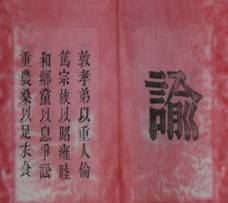 諭
敦孝弟以重人倫
篤宗族以昭雍睦
和鄉黨以息爭訟
重農桑以足衣食